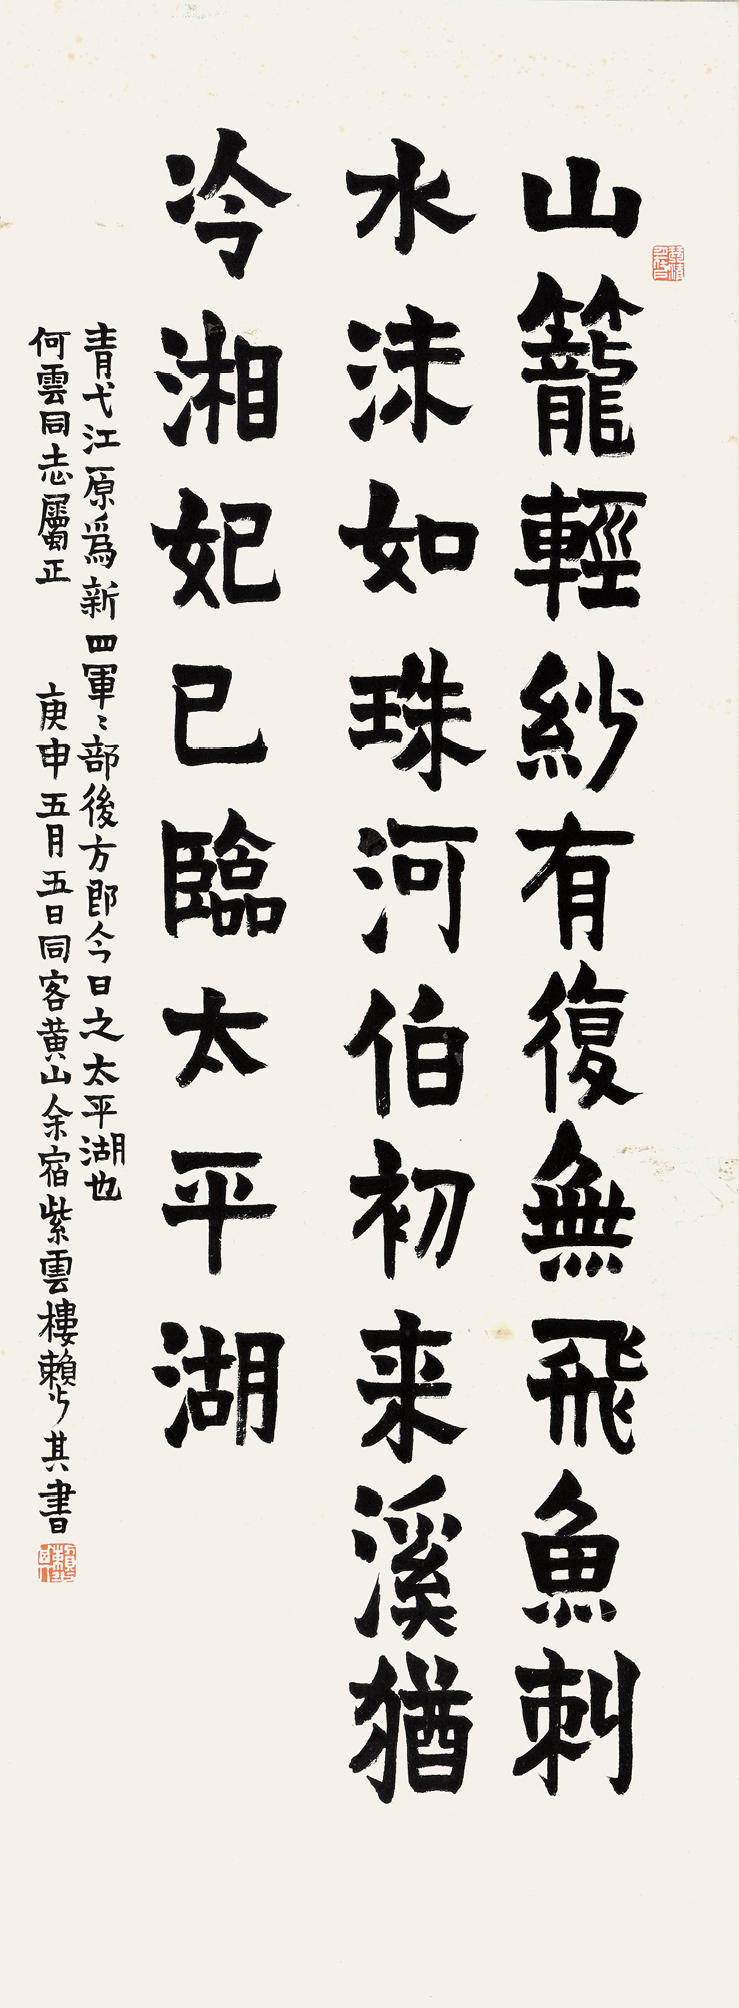 山籠輕紗有復無飛魚刺
水沫如珠河伯初来溪猶
冷湘妃已臨太平湖
青弋江原爲新四軍〻部後方即今日之太平湖也
何雲同志屬正 庚申五月五日同客黄山余宿紫雲樓賴少其書